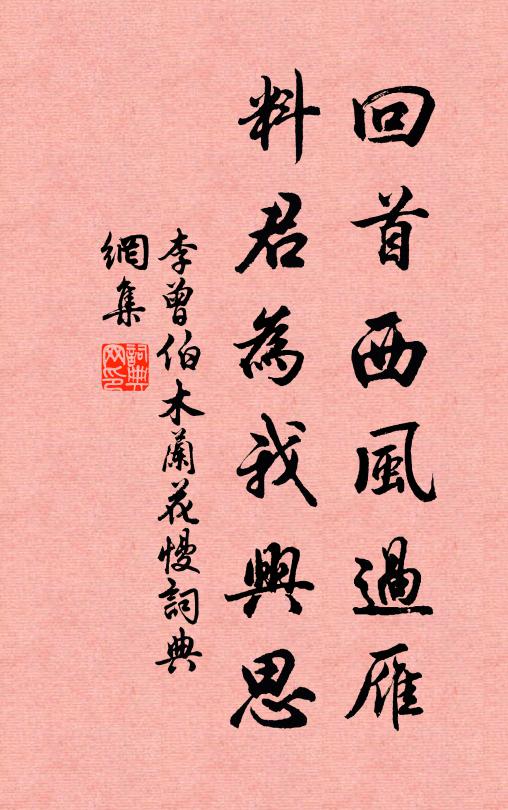 回首西風過雁
料君為我興思
李曾伯木蘭花慢詞典
網集
詞典網印